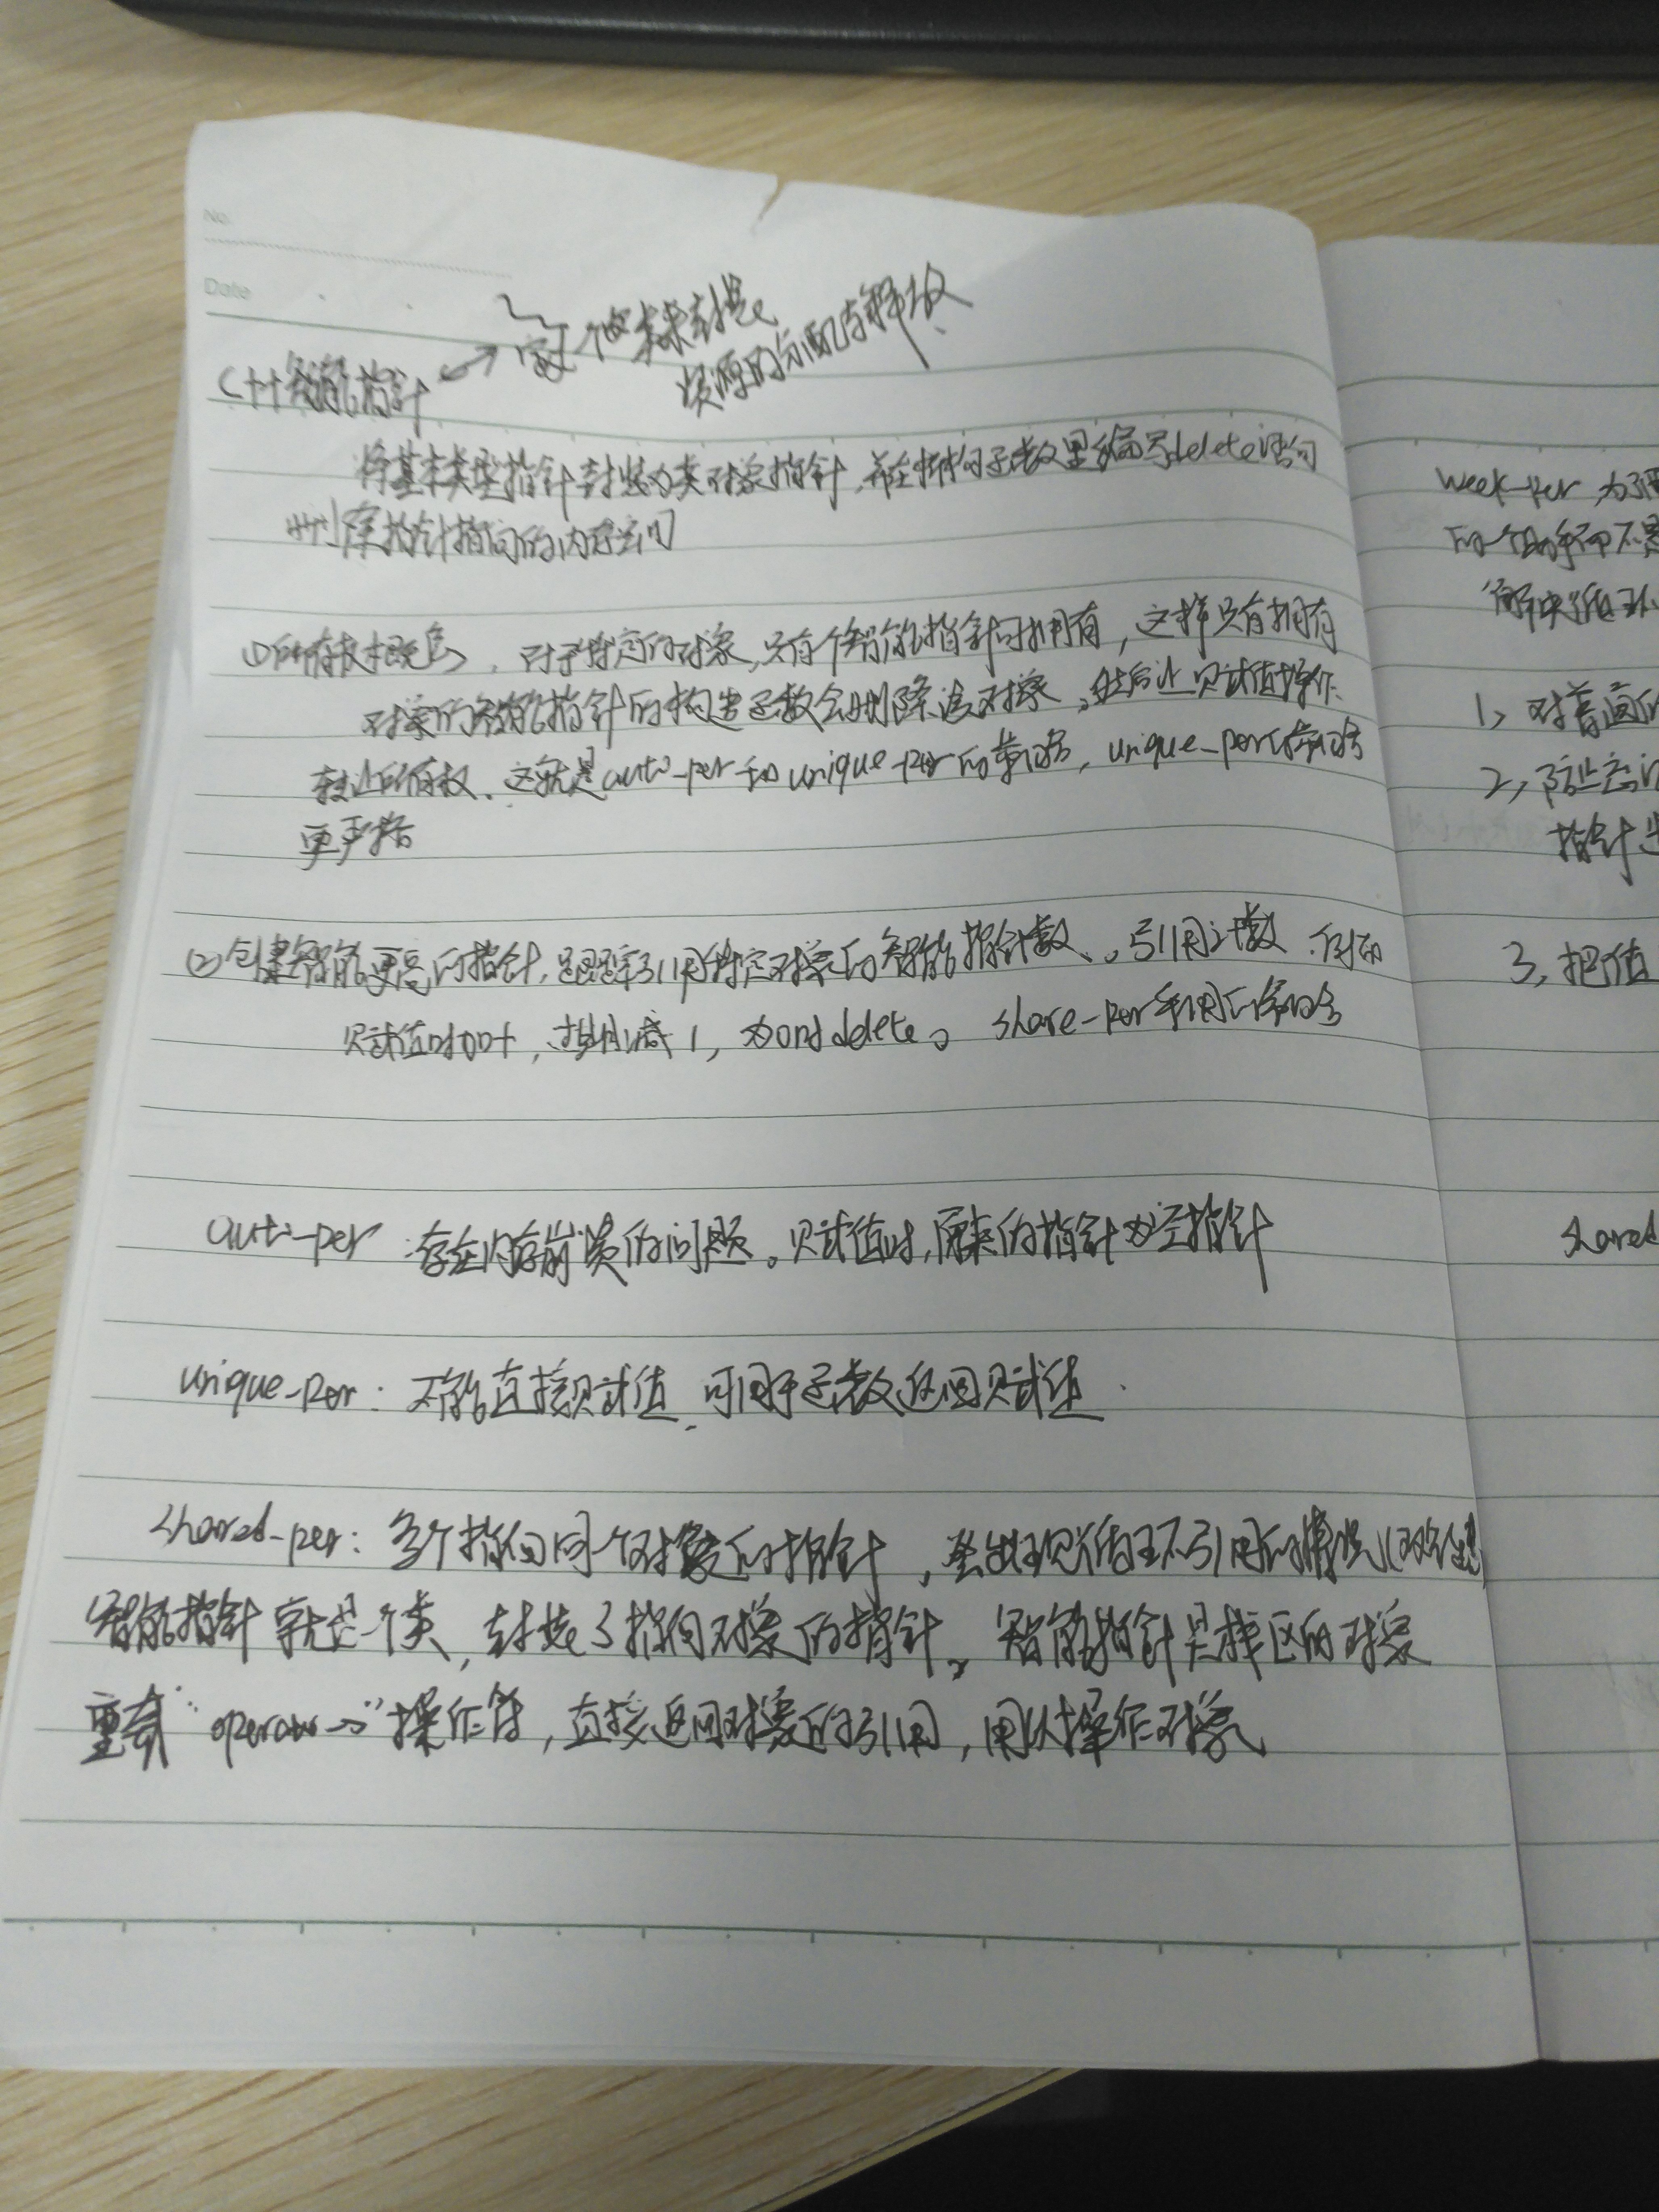 No.
Date
C++智能指针 ↔ 定义一个类来封装
资源的分配与释放
将基本类型指针封装为类对象指针,并在析构函数里编写delete语句
删除指针指向的内存空间
①所有权概念,对于特定的对象,只有个智能指针可拥有,这样只有拥有
对象的智能指针的构造函数会删除该对象。然后让赋值操作
转让所有权,这就是auto-per和unique-per的策略,unique-per策略
更严格
②创建智能更高的指针,跟踪引用特定对象的智能指针数。引用计数.例如
赋值时加1,过期减1,为0时delete。share-per采用策略
auto-per:存在内存崩溃的问题。赋值时,原来的指针为空指针
unique-per:不能直接赋值,可用于函数返回赋值.
shared-per:多个指向同一个对象的指针,会出现循环引用的情况
智能指针就是个类,封装了指向对象的指针。智能指针是栈区的对象
重载"operator->"操作符,直接返回对象的引用,用以操作对象
week-per,为了
的一个助手而不是
解决循环
1,对普通
2,防止忘记
指针
3,把值
shared